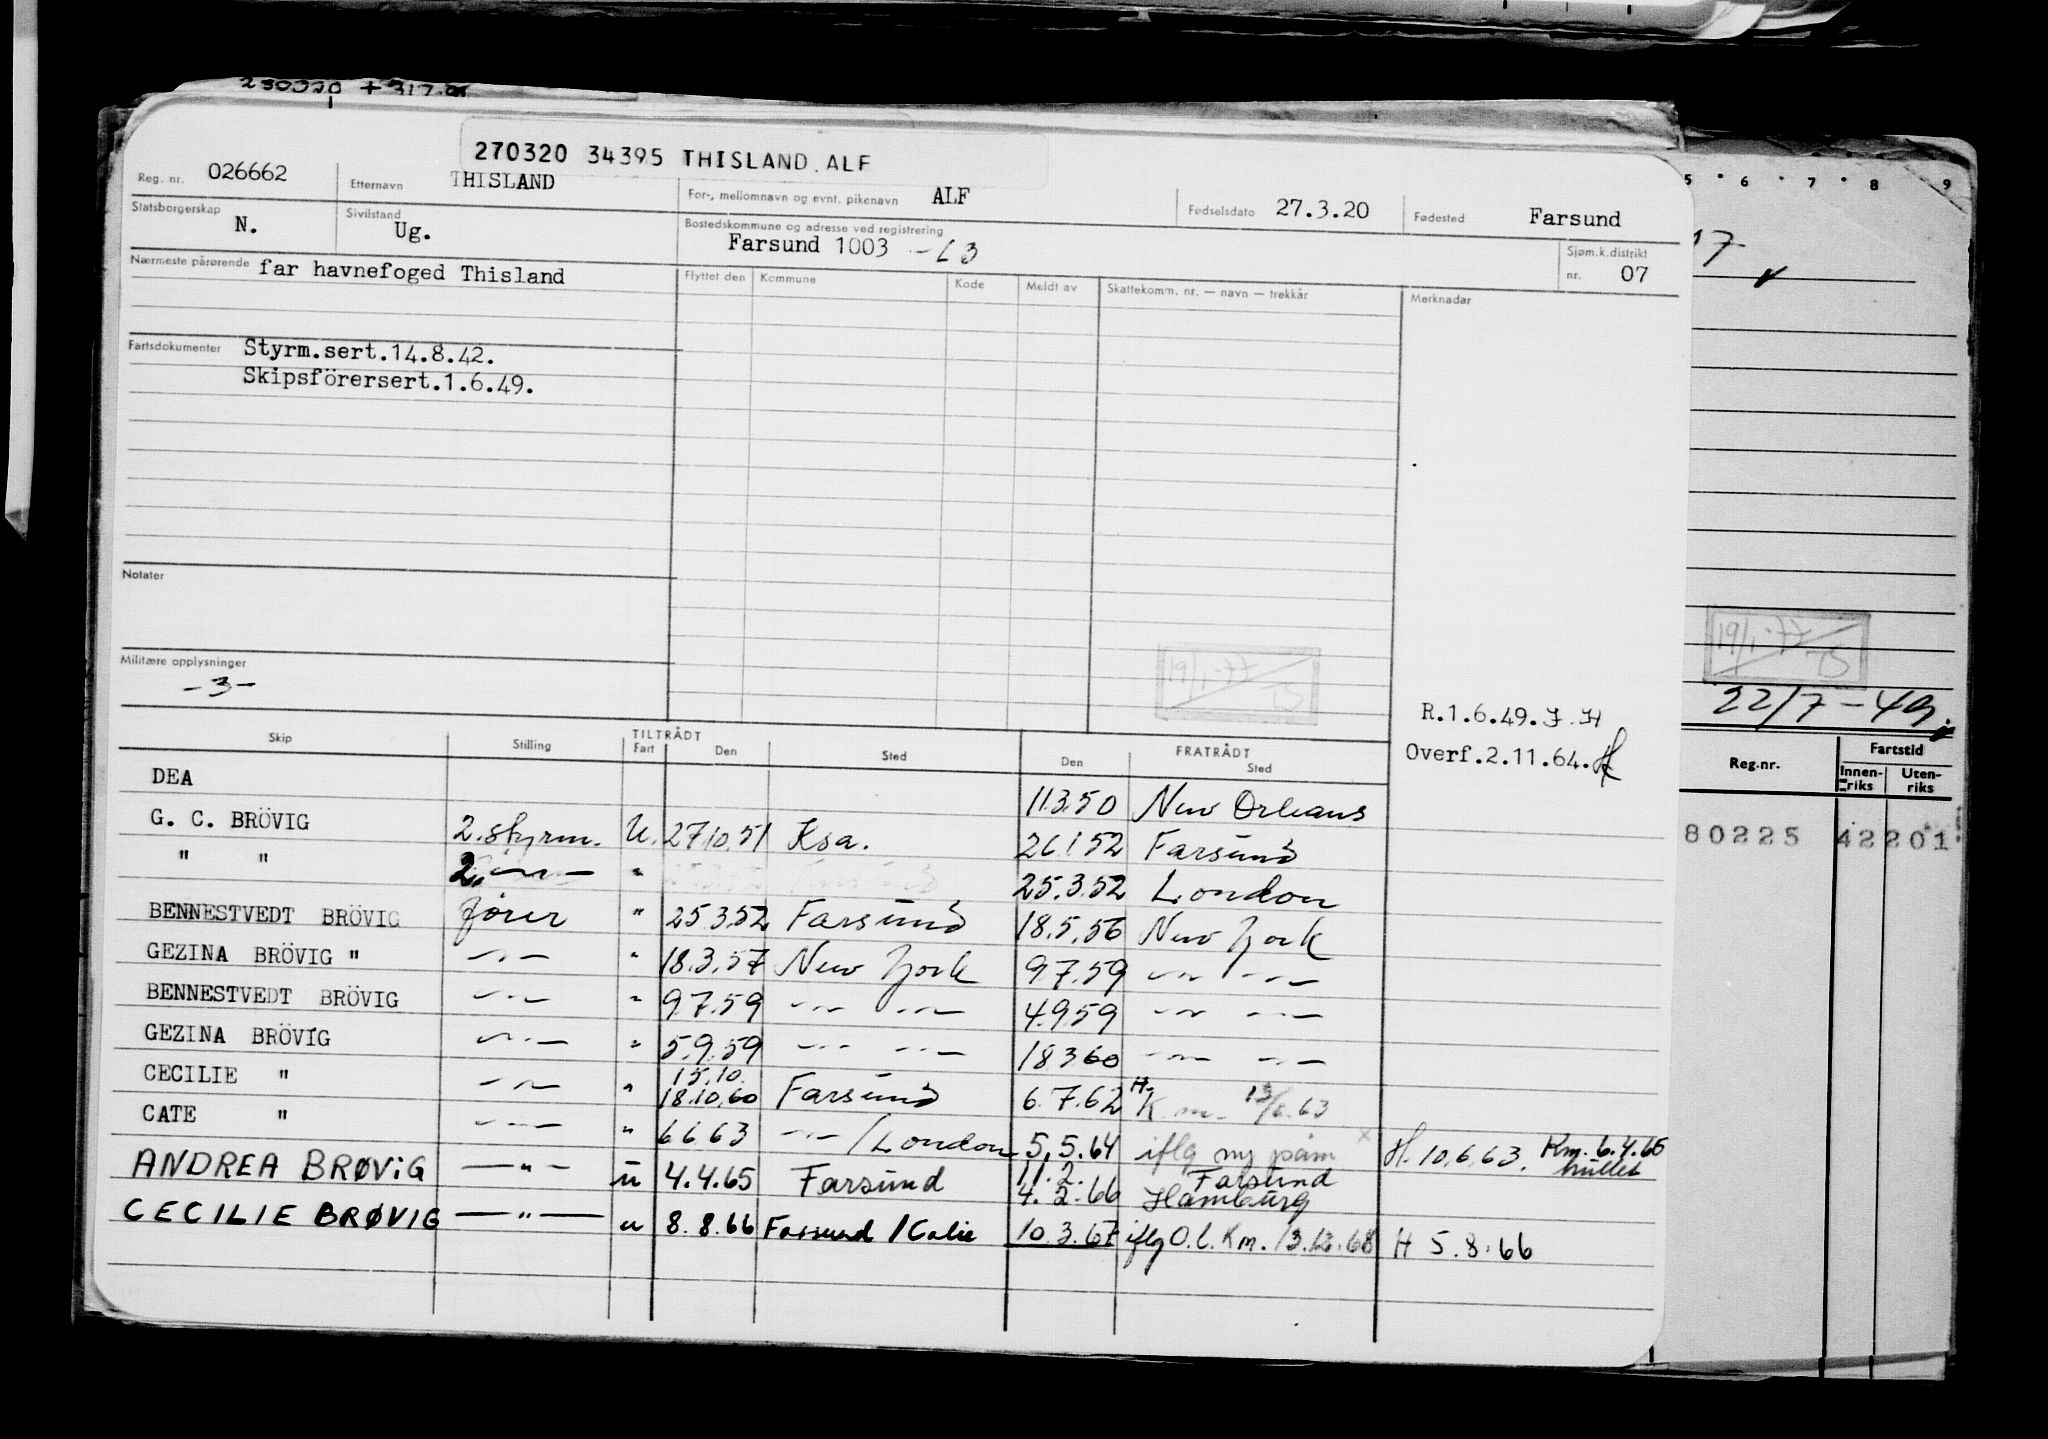 270320 34395 THISLAND, ALF
Reg. nr. 026662 Etternavn THISLAND For-, mellomnavn og evnt. pikenavn ALF Fødselsdato 27.3.20 Fødested Farsund
Statsborgerskap N. Sivilstand Ug. Bostedskommune og adresse ved registrering Farsund 1003 Sjøm.k.distrikt nr. 07
Nærmeste pårørende far havnefoged Thisland Flyttet den Kommune Kode Meldt av Skattekomm. nr. — navn — trekkår Merknadar
Fartsdokumenter Styrm.sert.14.8.42.
Skipsförersert.1.6.49.
Notater
Militære opplysninger
-3-
19/1-77
R.1.6.49.
Overf.2.11.64.
Skip Stilling TILTRÅDT Fart Den Sted FRATRÅDT Den Sted
DEA 11.3.50 New Orleans
G. C. BRÖVIG 2.styrm. U. 27.10.51 Ksa. 26.1.52 Farsund
" " 2. —"— " 25.3.52 London
BENNESTVEDT BRÖVIG fører " 25.3.52 Farsund 18.5.56 New York
GEZINA BRÖVIG " —"— " 18.3.57 New York 9.7.59 —"— —"—
BENNESTVEDT BRÖVIG —"— " 9.7.59 —"— —"— 4.9.59 —"— —"—
GEZINA BRÖVIG —"— " 5.9.59 —"— —"— 18.3.60 —"— —"—
CECILIE " —"— " 15.10. 18.10.60 Farsund 6.7.62 K.m.
CATE " —"— " 6.6.63 —"— / London 5.5.64 iflg ny påm H. 10.6.63. Km. 6.4.65
ANDREA BRØVIG —"— u 4.4.65 Farsund 11.2. Farsund
4.2.66 Hamburg
CECILIE BRØVIG —"— u 8.8.66 Farsund / 10.3.67 iflg O.l. Km. 13.12.68 H 5.8.66
5 6 7 8 9
17
19/1-77
22/7-49.
Reg.nr. Fartstid
Innen-riks Uten-riks
80225 42201